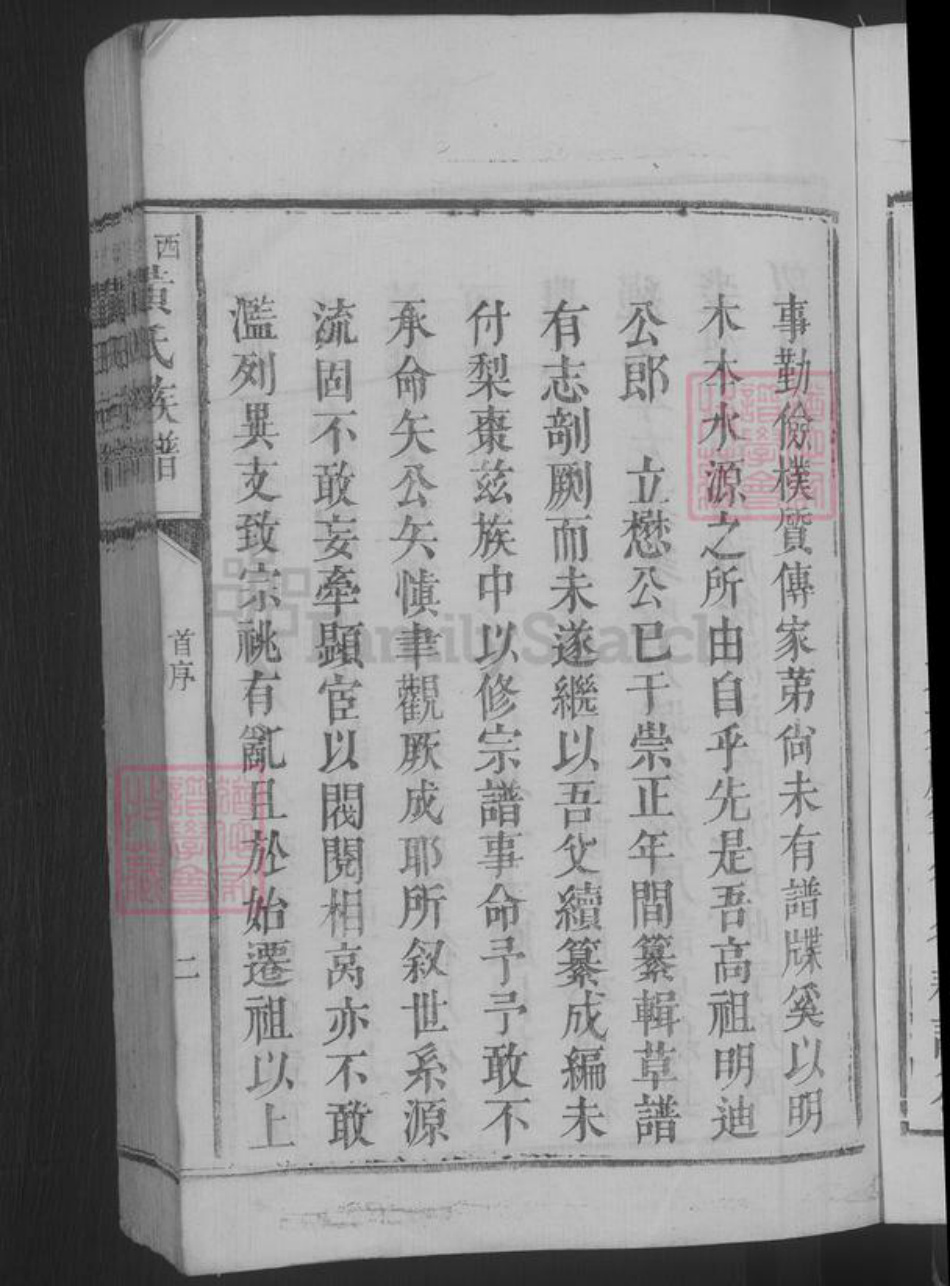 事勤儉樸質傳家苐尙未有譜牒奚以明
木本水源之所由自乎先是吾高祖明迪
公郎 立懋公已于崇正年間纂輯草譜
有志剞劂而未遂繼以吾父續纂成編未
付梨棗兹族中以修宗譜事命予予敢不
承命矢公矢慎聿觀厥成耶所叙世系源
流固不敢妄牽顯宦以閥閱相高亦不敢
濫列異支致宗祧有亂且於始遷祖以上
西
黃氏族譜
首序
二
FamilySearch